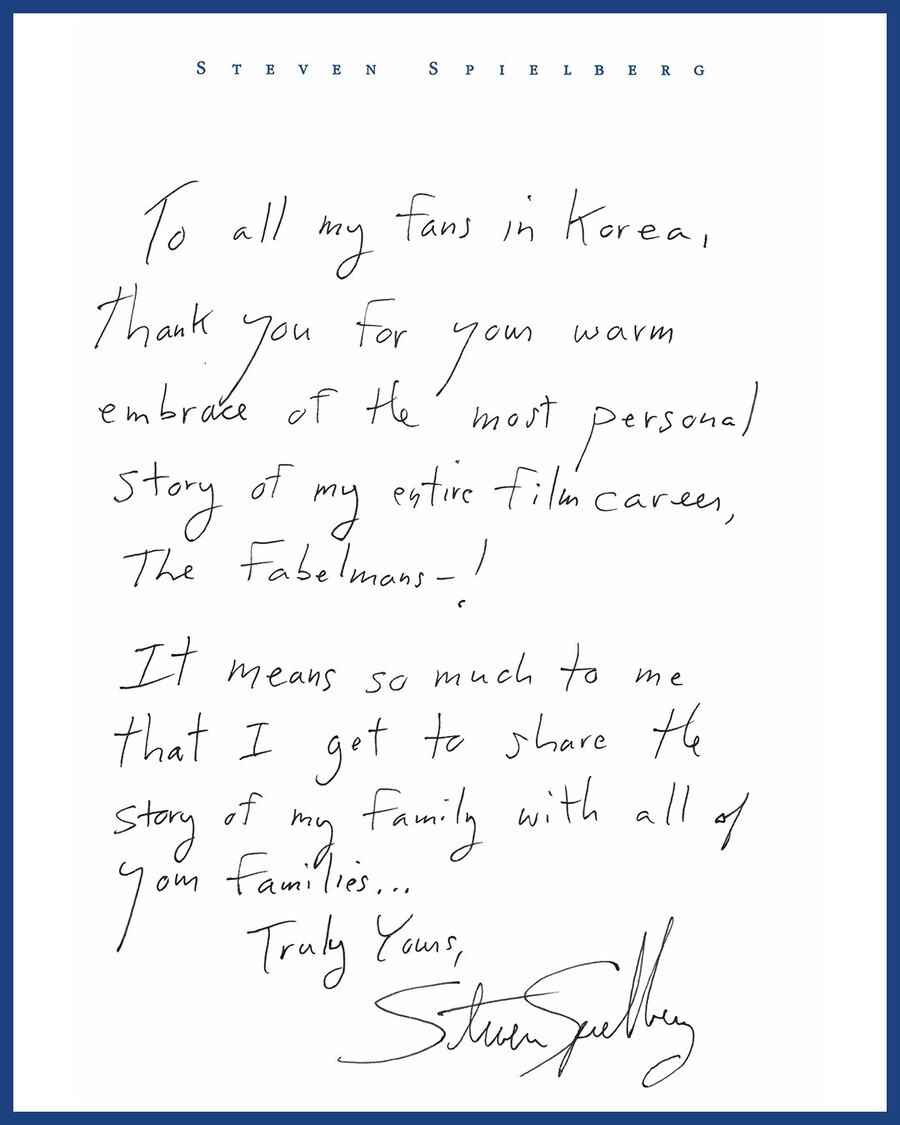 STEVEN SPIELBERG
To all my fans in Korea,
Thank you for your warm
embrace of the most personal
story of my entire film career,
The Fabelmans-!
It means so much to me
that I get to share the
story of my family with all of
your families...
Truly Yours,
Steven Spielberg